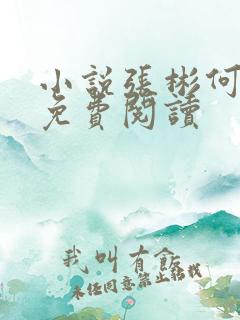 小説張彬何
免費閱讀
我叫有飯
未經同意禁止轉載